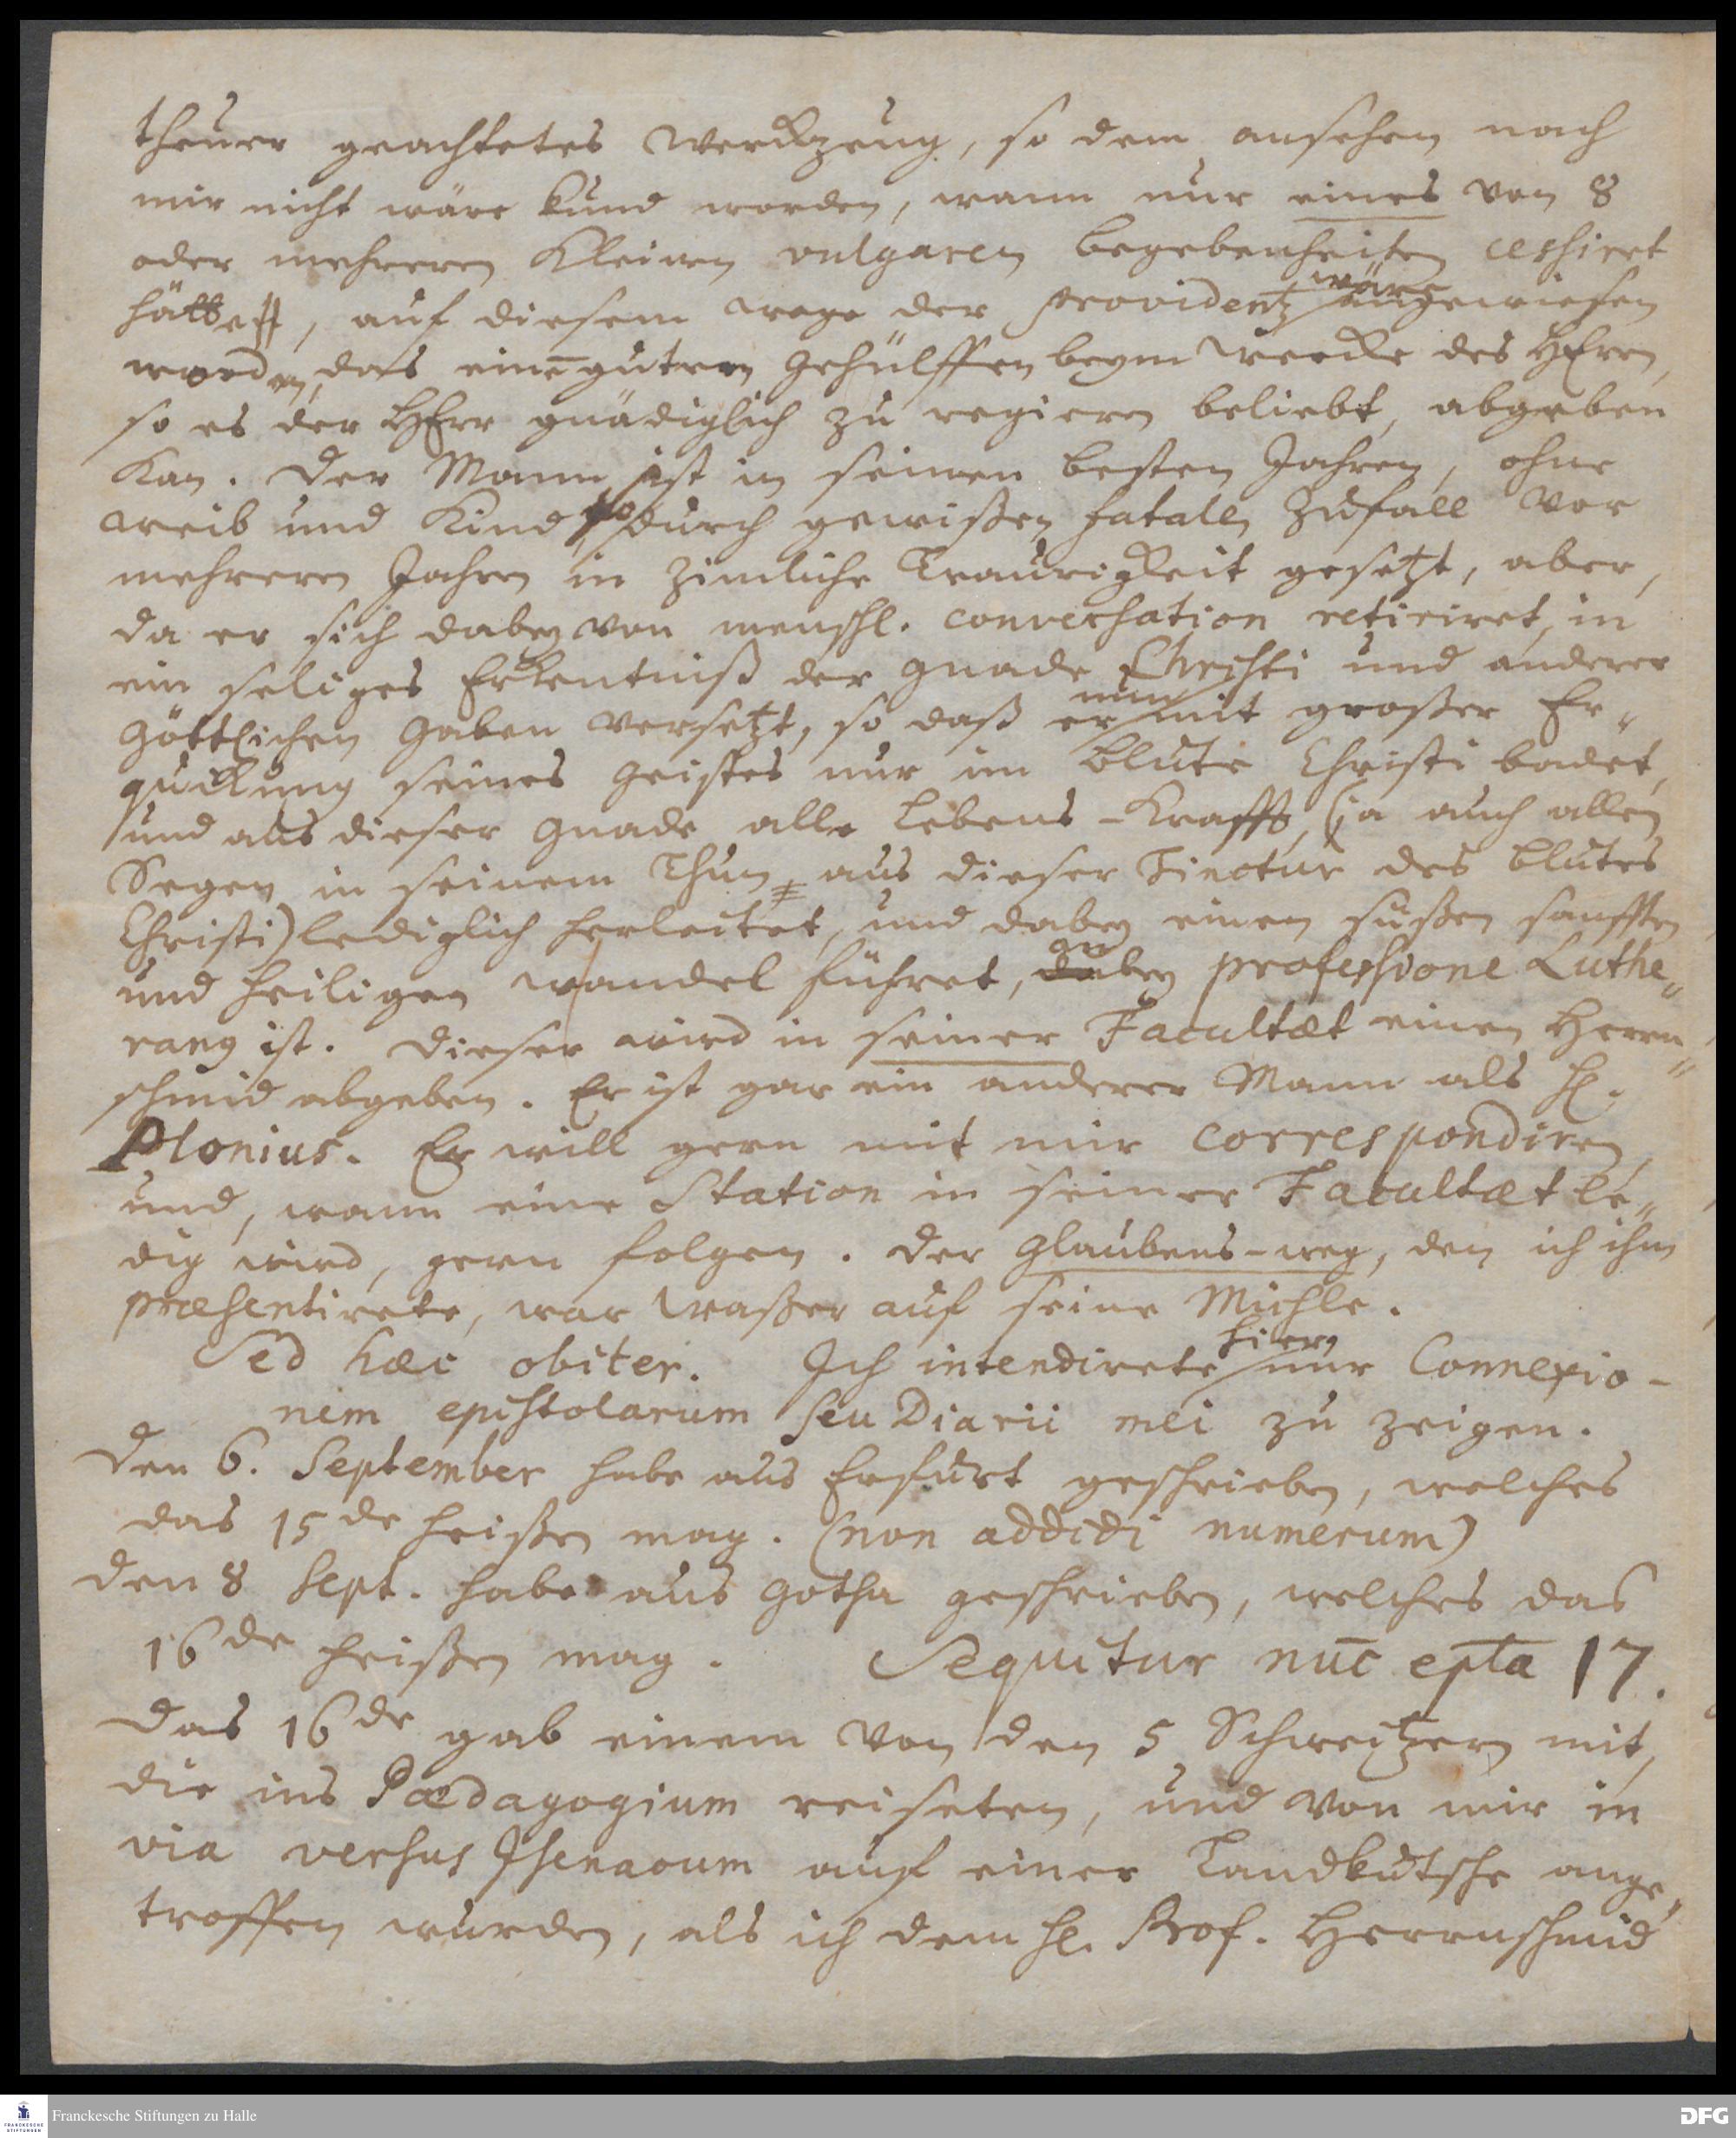 theuer geachtetes Werckzeug, so dem ansehen nach
mir nicht wäre kund worden, wann nur eines von 8
oder mehreren kleinen vulgaren begebenheiten cessiret
hätte, auf diesem wege der providentz wäre angewiesen
worden, das einen guten Gehülffen beym Wercke des HErrn,
so es der HErr gnädiglich zu regieren beliebt, abgeben
kan. Der Mann ist in seinen besten Jahren, ohne
Weib und Kind, durch gewißen fatalen Zufall vor
mehreren Jahren in zimliche Traurigkeit gesetzt, aber,
da er sich dabey von menschl. conversation retiriret, in
ein seliges Erkentniß der Gnade Christi und anderer
Göttlichen Gaben versetzt, so daß er nun mit großer Er-
quickung seines Geistes nur im Blute Christi badet,
und aus dieser Gnade alle Lebens-Krafft, (ja auch allen
Segen in seinem Thun, aus dieser Tinctur des Blutes
Christi) lediglich herleitet, und dabey einen süßen sanfften
und heiligen Wandel führet, dabey professione Luthe-
raner ist. Dieser wird in seiner Facultæt einen Herrn-
schmid abgeben. Er ist gar ein anderer Mann als H.
Plonius. Er will gern mit mir correspondiren,
und, wann eine Station in seiner Facultæt le-
dig wird, gern folgen. Der Glaubens-weg, den ich ihm
præsentirete, war Waßer auf seine Mühle.
Sed hæc obiter. Ich intendirete hier nur Connexio-
nem epistolarum seu Diarii mei zu zeigen.
Den 6. September habe aus Erfurt geschrieben, welches
das 15de heißen mag. (non addidi numerum)
Den 8 Sept. habe aus Gotha geschrieben, welches das
16de heißen mag. Sequitur nūc epta 17.
Das 16de gab einem von den 5 Schweitzern mit,
die ins Pædagogium reiseten, und von mir in
via versus Isenacum auf einer Landkutsche ange-
troffen wurden, als ich dem H. Prof. Herrnschmid
Franckesche Stiftungen zu Halle
FRANCKESCHE STIFTUNGEN
DFG